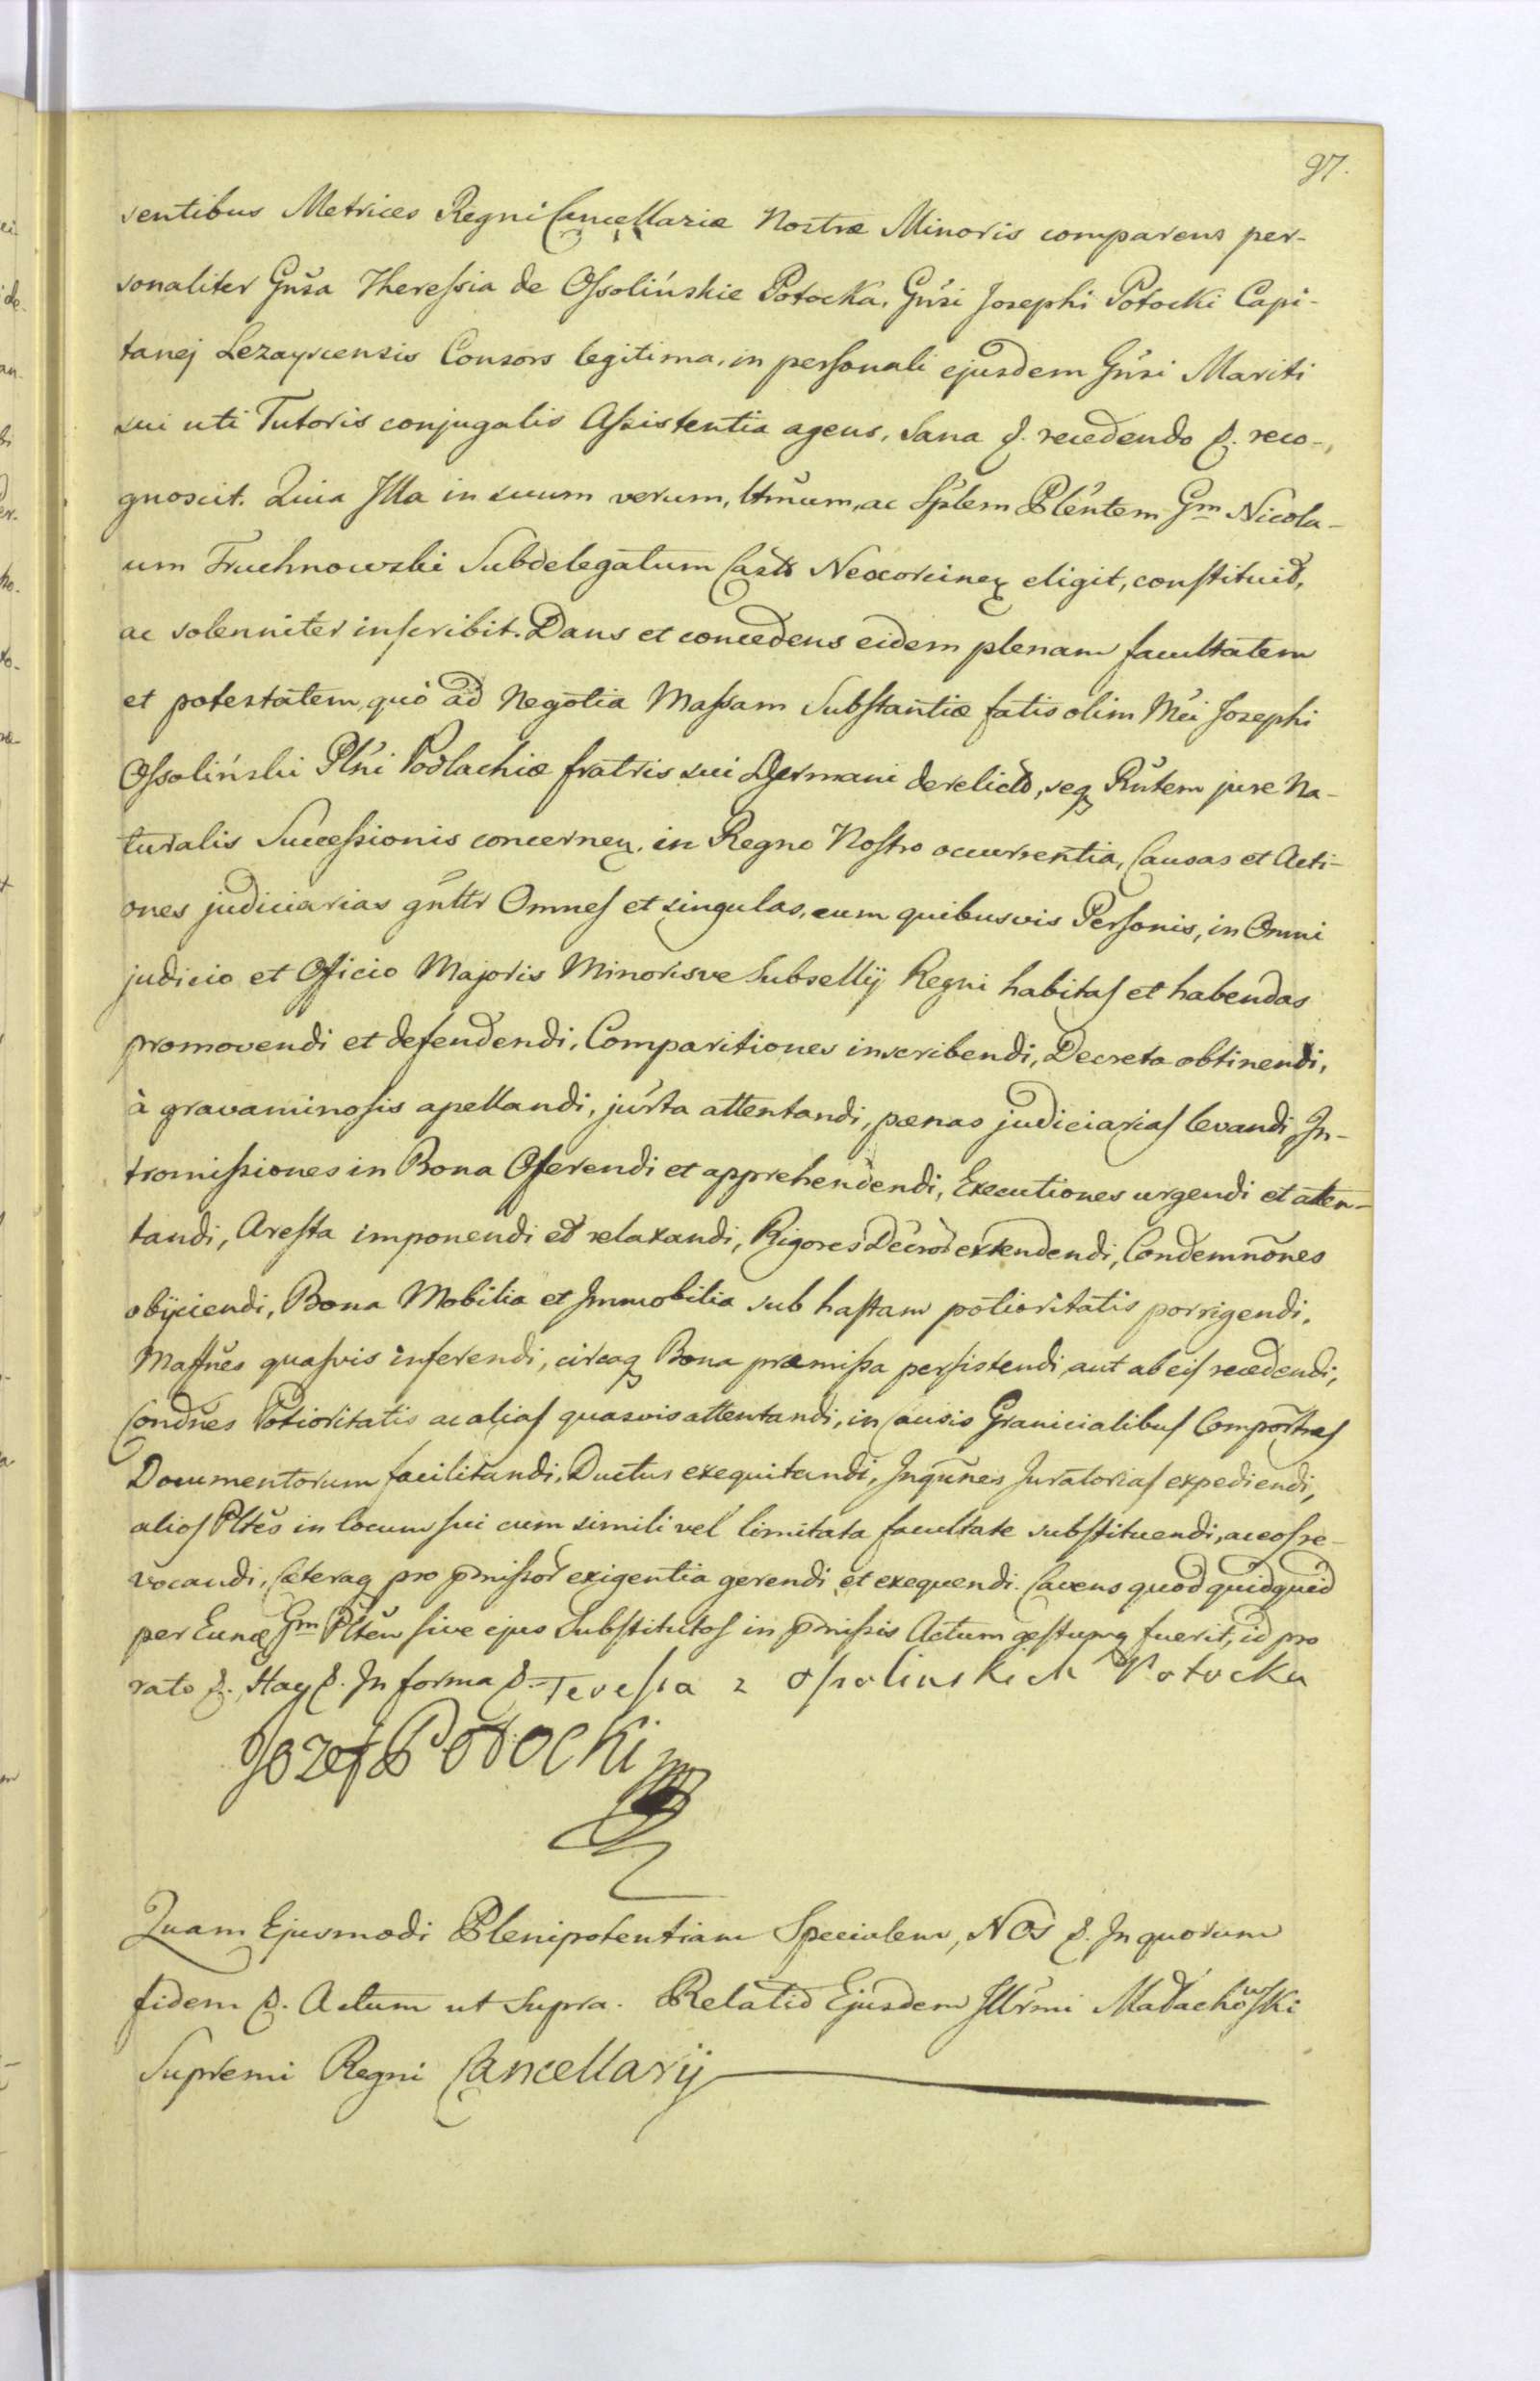 97.
sentibus Metrices Regni Cancellariæ Nostræ Minoris comparens per-
sonaliter Gnsa Theressia de Ossolińskie Potocka, Gnsi Josephi Potocki Capi-
tanej Lezayscensis Consors legitima, in personali ejusdem Gnsi Mariti
sui uti Tutoris conjugalis Assistentia agens, Sana &. recedendo &. reco-
gnoscit. Quia Illa in suum verum, ltmum, ac Splem Plentem Gm Nicola-
um Truchnowski Subdelegatum Castr Neocorcinen eligit, constituit,
ac solenniter inscribit. Dans et concedens eidem plenam facultatem
et potestatem, quò ad Negotia Massam Substantiæ fatis olim Mci Josephi
Ossoliński Plni Podlachiæ fratris sui Germani derelicto, seq Rntem jure Na-
turalis Successionis concernen, in Regno Nostro occurrentia, Causas et Acti-
ones judiciarias gnltr Omnes et singulas, cum quibusvis Personis, in Omni
judicio et Officio Majoris Minorisve Subsellij Regni habitas et habendas
promovendi et defendendi, Comparitiones inscribendi, Decreta obtinendi,
à gravaminosis apellandi, jurta attentandi, pœnas judiciarias levandi, In-
tromissiones in Bona Offerendi et apprehendendi, Executiones urgendi et atten-
tandi, Aresta imponendi et relaxandi, Rigores Decror extendendi, Condemnónes
obijciendi, Bona Mobilia et Immobilia sub hastam potioritatis porrigendi,
Maftnes quasvis inferendi, circaq Bona præmissa persistendi aut ab eis recedendi,
Condnes Potioritatis ac alias quasvis attentandi, in Causis Granicialibus Comportnes
Documentorum facilitandi, Ductus exequitandi, Inqunes Juratorias expediendi,
alios Pltes in locum sui cum simili vel limitata facultate substituendi, ac eos re-
vocandi, Cæteraq pro pmissor exigentia gerendi et exequendi. Cavens quod quidquid
per Eunq Gm Pltem sive ejus Substitutos in pmissis Actum gestumq fuerit, id pro
rato &. Haq &. In forma &. Teressa z ossolinskich Potocka
Jozef Potocki mp
Quam Ejusmodi Plenipotentiam Specialem, NOS &. In quorum
fidem &. Actum ut supra. Relatio Ejusdem Illrmi Małachowski
Supremi Regni Cancellarij